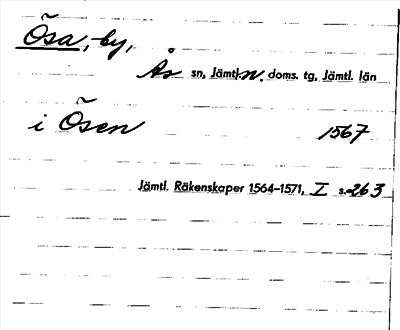 Ösa, by,
Ås sn, Jämtl. n. doms. tg, Jämtl. län
i Ösen 1567
Jämtl. Räkenskaper 1564-1571, I s. 263